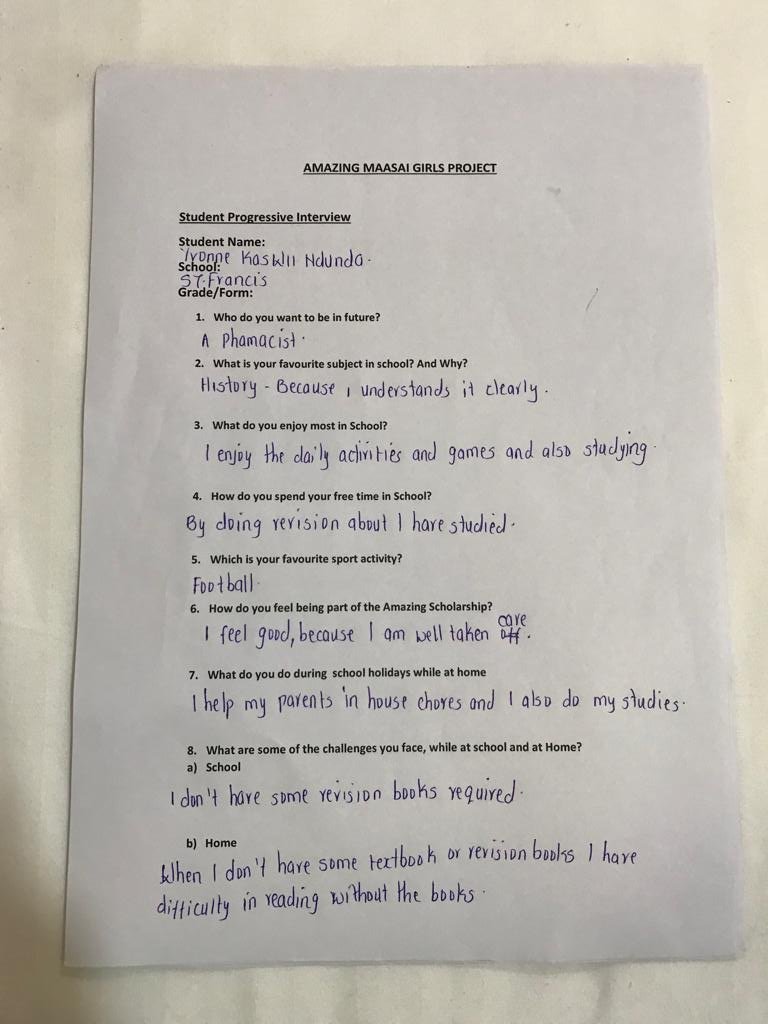 AMAZING MAASAI GIRLS PROJECT
Student Progressive Interview
Student Name:
Yvonne Kaswii Ndunda.
School:
ST. Francis
Grade/Form:
1. Who do you want to be in future?
A Phamacist.
2. What is your favourite subject in school? And Why?
History - Because I understands it clearly.
3. What do you enjoy most in School?
I enjoy the daily activities and games and also studying.
4. How do you spend your free time in School?
By doing revision about I have studied.
5. Which is your favourite sport activity?
Football.
6. How do you feel being part of the Amazing Scholarship?
I feel good, because I am well taken care off.
7. What do you do during school holidays while at home
I help my parents in house chores and I also do my studies.
8. What are some of the challenges you face, while at school and at Home?
a) School
I don't have some revision books required.
b) Home
When I don't have some textbook or revision books I have
difficulty in reading without the books.